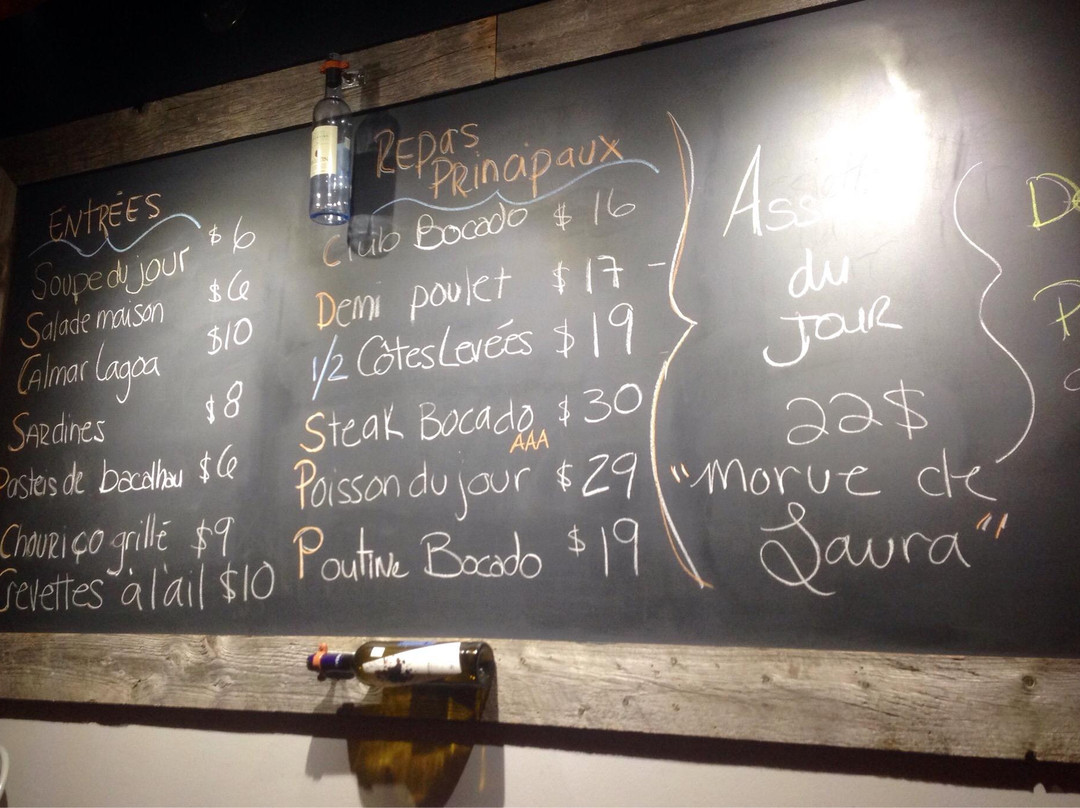 ENTRÉES
Soupe du jour $6
Salade maison $6
CAlmar Lagoa $10
SARdines $8
Pasteis de bacalhau $6
Chouriço grillé $9
Crevettes à l'ail $10
REPas
PRincipaux
Club Bocado $16
Demi poulet $17
1/2 Côtes Levées $19
Steak Bocado $30
AAA
Poisson du jour $29
Poutine Bocado $19
du
JOUR
22$
"morue de
Laura"